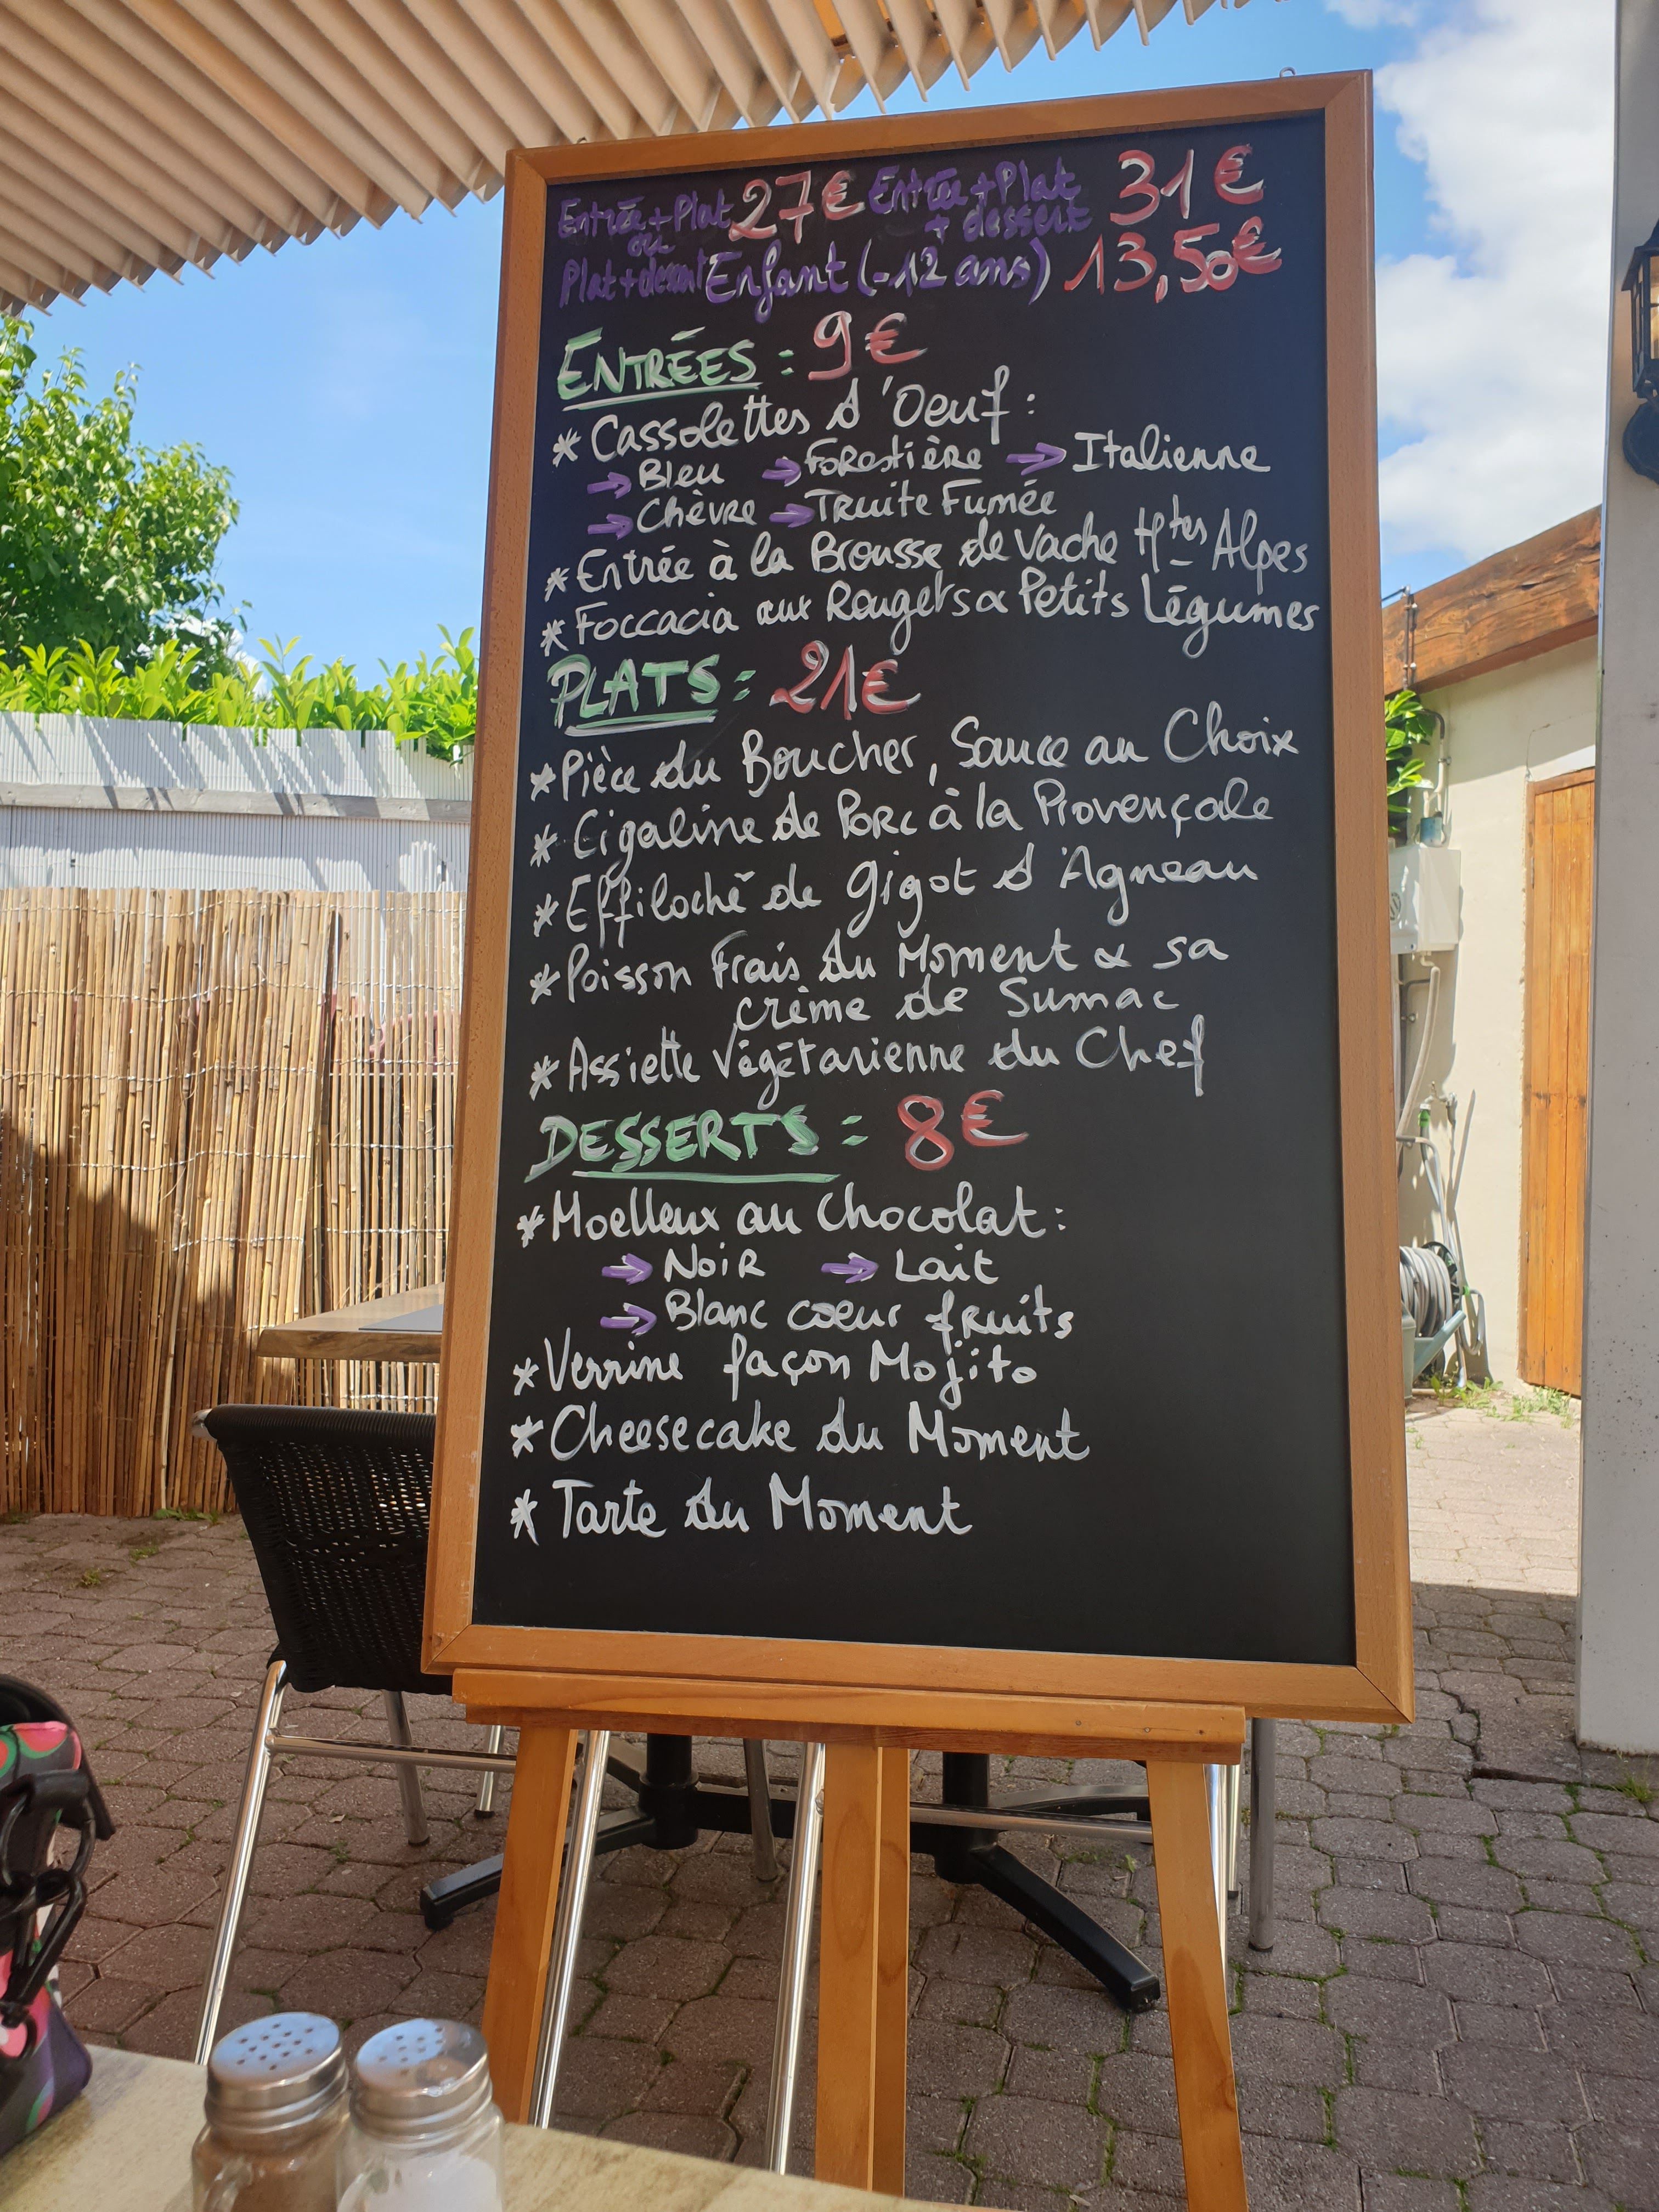 Entrée+Plat 27€ Entrée+Plat 31€
ou + dessert
Plat+dessert Enfant (-12 ans) 13,50€
ENTRÉES : 9€
* Cassolettes d'Oeuf :
→ Bleu → Forestière → Italienne
→ Chèvre → Truite Fumée
* Entrée à la Brousse de Vache Htes Alpes
* Foccacia aux Rougets & Petits Légumes
PLATS : 21€
* Pièce du Boucher, Sauce au Choix
* Cigaline de Porc à la Provençale
* Effiloché de Gigot d'Agneau
* Poisson Frais du Moment & sa
crème de Sumac
* Assiette Végétarienne du Chef
DESSERTS : 8€
* Moelleux au Chocolat :
→ Noir → Lait
→ Blanc coeur fruits
* Verrine façon Mojito
* Cheesecake du Moment
* Tarte du Moment